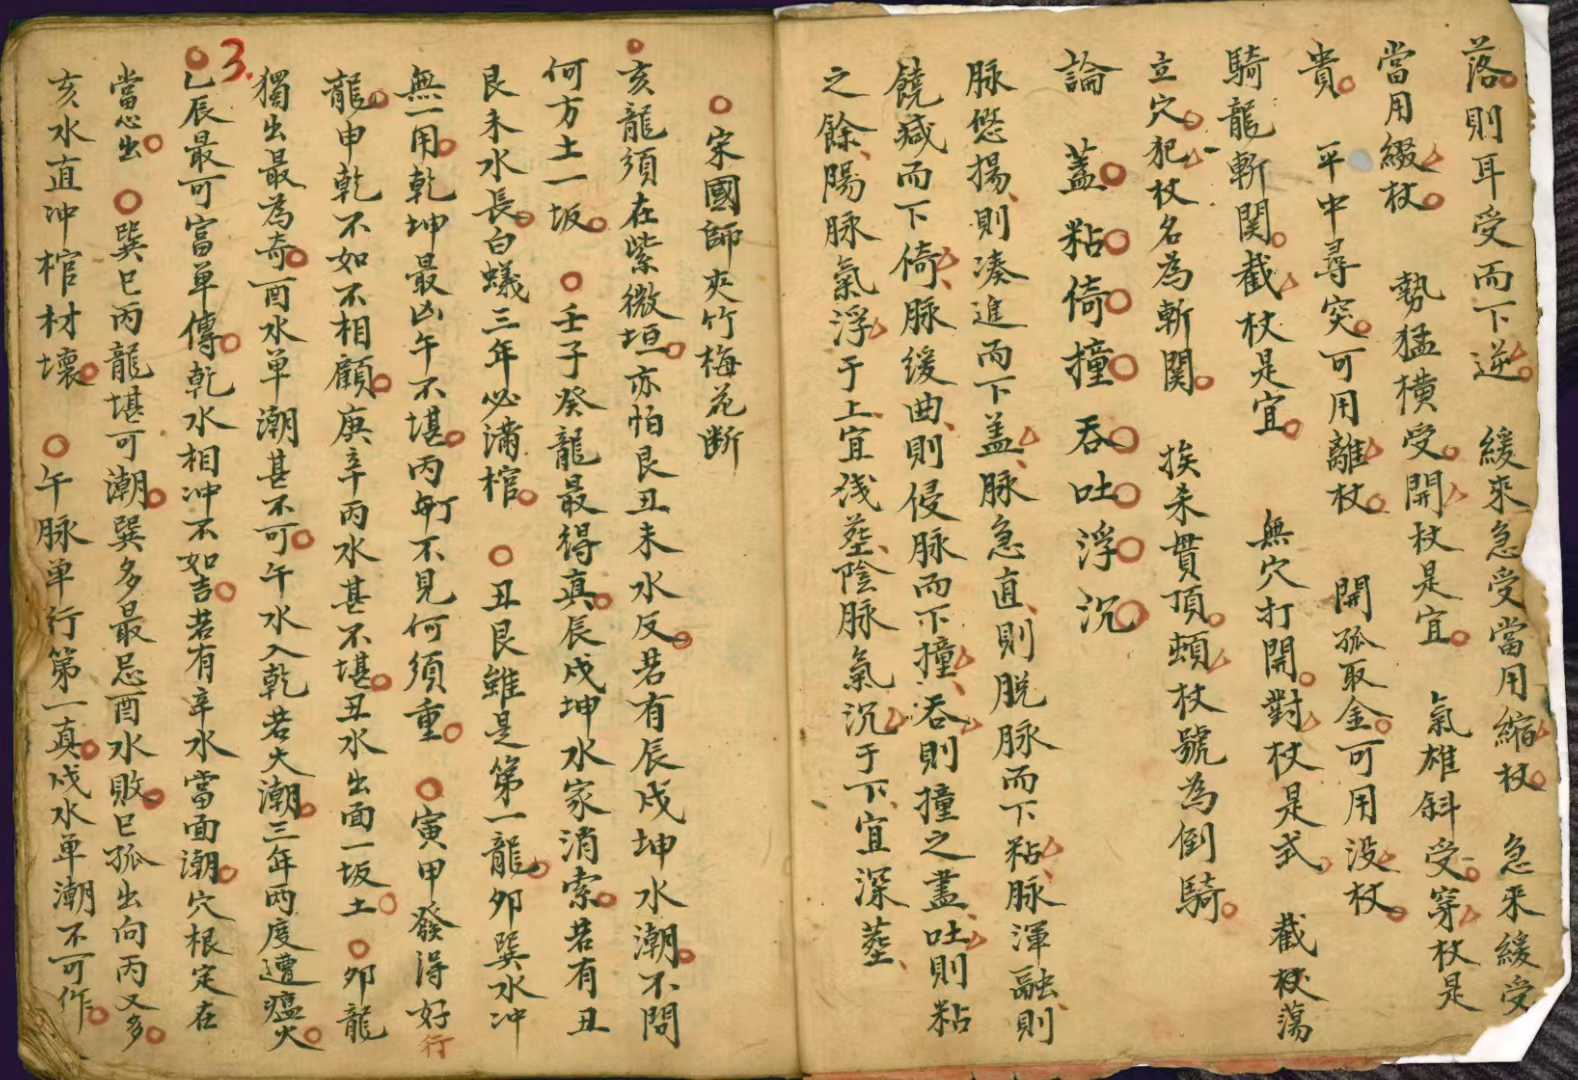 落則耳受而下逆 緩來急受當用縮杖 急來緩受
當用綴杖 勢猛橫受開杖是宜 氣雄斜受穿杖是
貴 平中尋突可用離杖 開孤取金可用没杖
騎龍斬関截杖是宜 無穴打開對杖是式 截杖蕩
立穴犯杖名為斬関 挨来貫頂頓杖號為倒騎
論 蓋粘倚撞吞吐浮沉
脉悠揚則凑進而下盖脉急直則脱脉而下粘脉渾融則
饒减而下倚脉緩曲則侵脉而下撞吞則撞之盡吐則粘
之餘陽脉氣浮于上宜浅塟陰脉氣沉于下宜深塟
宋國師夾竹梅花断
亥龍須在紫微垣亦怕艮丑未水反若有辰戌坤水潮不問
何方土一坂 壬子癸龍最得真辰戌坤水家消索若有丑
艮未水長白蟻三年必滿棺 丑艮雖是第一龍卯巽水冲
無一用乾坤最凶午不堪丙午丁不見何須重 寅甲發得好行
龍申乾不如不相顧庚辛丙水甚不堪丑水出面一坂土 卯龍
獨出最為奇酉水单潮甚不可午水入乾若大潮三年兩度遭瘟火
乙辰最可富单傳乾水相冲不如吉若有辛水當面潮穴根定在
當心出 巽巳丙龍堪可潮巽多最忌酉水敗巳孤出向丙又多
亥水直冲棺材壞 午脉单行第一真戌水单潮不可作
3.